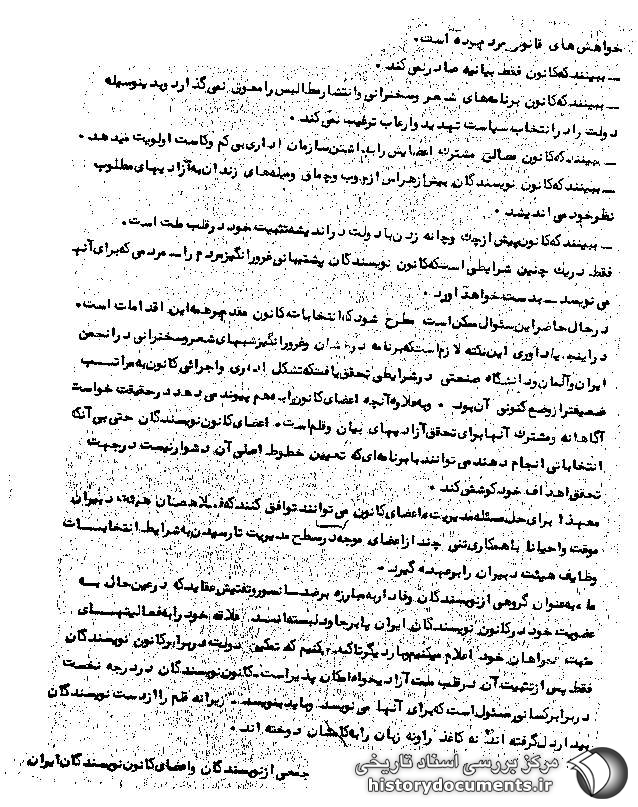 خواهش‌های قانونی مردم بوده است.
ــ ببینند که کانون فقط بیانیه صادر نمی‌کند.
ــ ببینند که کانون برنامه‌های شعر و سخنرانی و انتشار مطالبش را معوق نمی‌گذارد و بدینوسیله
دولت را در انتخاب سیاست تهدید و ارعاب ترغیب نمی‌کند.
ــ ببینند که کانون مصالح مشترک اعضایش را به داشتن سازمان اداری بی کم و کاست اولویت میدهد.
ــ ببینند که کانون نویسندگان بیش از هراس از چوب و چماق و میله‌های زندان به آزادیهای مطلوب
نظر خود می‌اندیشد.
ــ ببینند که کانون پیش از چک و چانه زدن با دولت در اندیشه تثبیت خود در قلب ملت است.
فقط در یک چنین شرایطی است که کانون نویسندگان پشتیبانی غرورانگیز مردم را ــ مردمی که برای آنها
می نویسد ــ بدست خواهد آورد.
در حال حاضر این سئوال ممکن است مطرح شود که انتخابات کانون مقدم بر همه این اقدامات است.
در اینجا یادآوری این نکته لازم است که برنامه درخشان و غرورانگیز شبهای شعر و سخنرانی در انجمن
ایران و آلمان و دانشگاه صنعتی در شرایطی تحقق یافت که تشکل اداری و اجرائی کانون به مراتب
ضعیفتر از وضع کنونی آن بود. و به علاوه آنچه اعضای کانون را به هم پیوند می دهد در حقیقت خواست
آگاهانه و مشترک آنها برای تحقق آزادیهای بیان و قلم است. اعضای کانون نویسندگان حتی بی آنکه
انتخاباتی انجام دهند می توانند با برنامه‌ای که تعیین خطوط اصلی آن دشوار نیست در جهت
تحقق اهداف خود کوشش کند.
معهذا برای حل مسئله مدیریت، اعضای کانون می توانند توافق کنند که همان هیئت دبیران
موقت و احیانا با همکاری تنی چند از اعضای موجه در سطح مدیریت تا رسیدن به شرایط انتخابات
وظایف هیئت دبیران را بوعهده گیرد.
ما، به عنوان گروهی از نویسندگان وفادار به مبارزه بر ضد سانسور و تفتیش عقاید که در عین حال به
عضویت خود در کانون نویسندگان ایران پابرجا و دلبسته‌اند، علاقه خود را به فعالیتهای
مثبت خواهان خود اعلام میکنیم و بار دیگر تاکید میکنیم که تمکین دولت در برابر کانون نویسندگان
فقط پس از تثبیت آن در قلب ملت آزادیخواه امکان پذیر است. کانون نویسندگان در درجه نخست
در برابر کسانی مسئول است که برای آنها می نویسد و باید بنویسد. زیرا نه قلم را از دست نویسندگان
بیدار دل گرفته اند، نه کاغذ را و نه زبان را به کامشان دوخته اند.
جمعی از نویسندگان و اعضای کانون نویسندگان ایران
مرکز بررسی اسناد تاریخی
historydocuments.ir